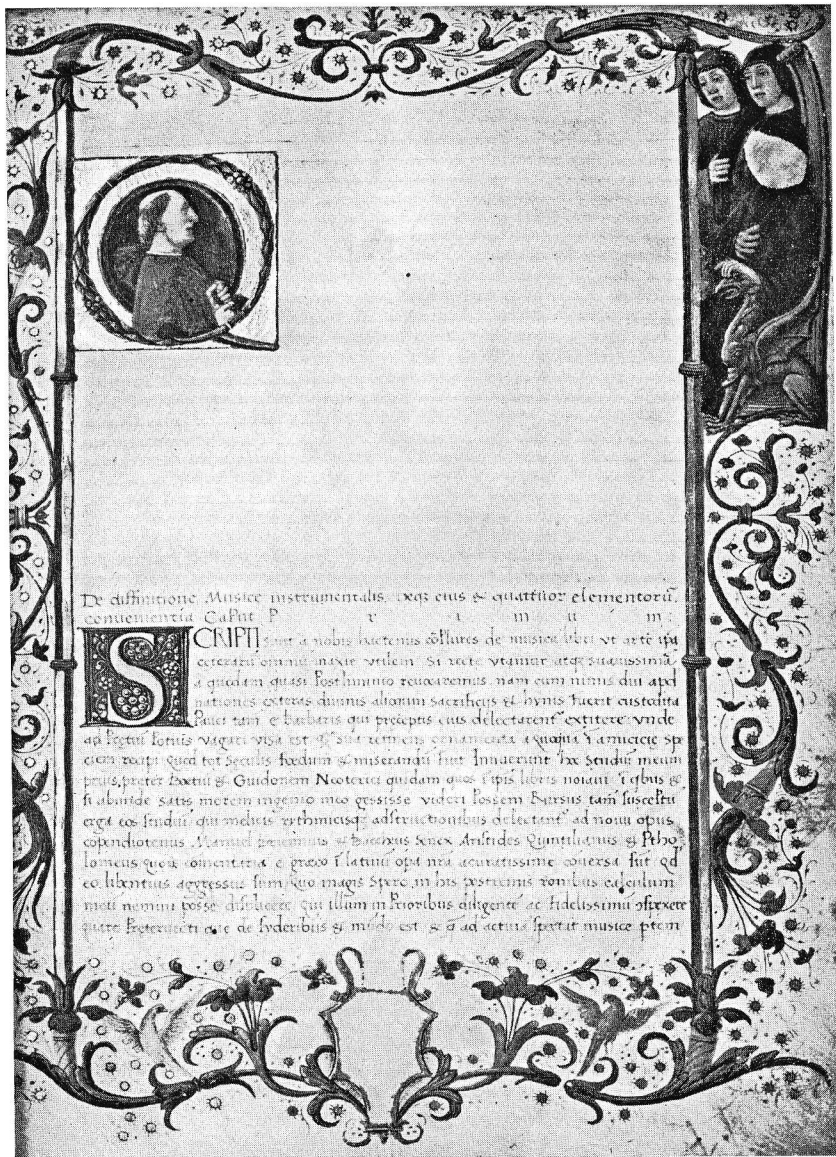 De diffinitione Musice instrumentalis deqȝ eius & quattuor elementorū
convenientia CaPut P r i m u m
SCRIPTI sunt a nobis hactenus cōPlures de musica libri vt artē ipā
ceterarū omniū maxīe vtilem Si recte vtamur atqȝ suauissimā
a quadam quasi Postliminio reuocaremus nam cum nimis diu apd
nationes exteras diuinis aliorum sacrificijs & hynis fuerit custodita
Pauci tam e Barbaris qui preceptis eius delectarent extitere vnde
vagari visa est & ornamenta
recepi Quod tot Seculis fœdum & miserandū fuit Inuaerunt hoc Studiū meum
preter Boetiū & Guidonem Neoterici quidam quos ipis libris noiaui ī qbus &
si abunde satis morem ingenio meo gessisse videri Possem Rursus tam susceptu
erga eos studiū qui melicis rythmicisqȝ adstructionibus delectant ad nouū opus
Manuel & Baccheus Senex Aristides Quintilianus & Ptho
lomeus quorū comentaria e greco ī latinū opa nra acuratissime conuersa sūt qd
eo libentius aggressus sum Quo magis Spero in his postremis calculum
meū nemini posse displicere qui illum in Prioribus diligente ac fidelissimū
quare que de syderibus & mūdo est & ad actiuā spectat musice ptem